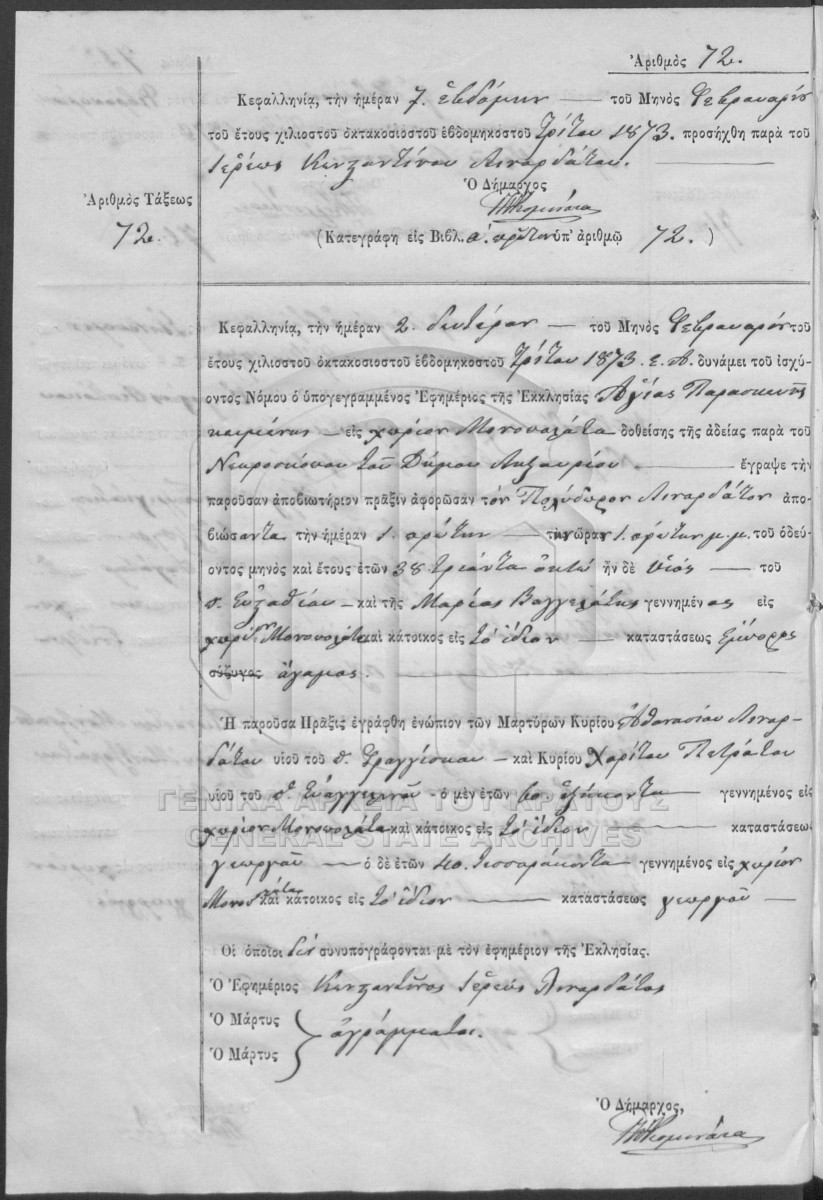 Ἀριθμὸς 72.
Κεφαλληνίᾳ, τὴν ἡμέραν 7. ἑβδόμην — τοῦ Μηνὸς Φεβρουαρίου
τοῦ ἔτους χιλιοστοῦ ὀκτακοσιοστοῦ ἑβδομηκοστοῦ τρίτου 1873. προσήχθη παρὰ τοῦ
Ἱερέως Κωνσταντίνου Λιναρδάτου.
Ὁ Δήμαρχος
Ἀριθμὸς Τάξεως
72.
(Κατεγράφη εἰς Βιβλ. α. πρῶτον ὑπ' ἀριθμῷ 72.)
Κεφαλληνίᾳ, τὴν ἡμέραν 2. δευτέραν — τοῦ Μηνὸς Φεβρουαρίου τοῦ
ἔτους χιλιοστοῦ ὀκτακοσιοστοῦ ἑβδομηκοστοῦ τρίτου 1873. ε. π. δυνάμει τοῦ ἰσχύ-
οντος Νόμου ὁ ὑπογεγραμμένος Ἐφημέριος τῆς Ἐκκλησίας Ἁγίας Παρασκευῆς
κειμένης — εἰς χωρίον Μονοπολάτα δοθείσης τῆς ἀδείας παρὰ τοῦ
Νεκροσκόπου τοῦ Δήμου Ληξουρίου. — ἔγραψε τὴν
παροῦσαν ἀποβιωτήριον πρᾶξιν ἀφορῶσαν τὸν Πολύδωρον Λιναρδάτον ἀπο-
βιώσαντα τὴν ἡμέραν 1. πρώτην — τὴν ὥραν 1. πρώτην μ.μ. τοῦ ὁδεύ-
οντος μηνὸς καὶ ἔτους ἐτῶν 38 τριάντα ὀκτώ ἦν δὲ υἱός — τοῦ
π. Εὐσταθίου — καὶ τῆς Μαρίας Βαγγελάτης γεννημένος εἰς
χωρίον Μονοπολάτα καὶ κάτοικος εἰς τὸ ἴδιον — καταστάσεως ἔμπορος
σύζυγος ἄγαμος.
Ἡ παροῦσα Πρᾶξις ἐγράφθη ἐνώπιον τῶν Μαρτύρων Κυρίου Ἀθανασίου Λιναρ-
δάτου υἱοῦ τοῦ π. Φραγγίσκου — καὶ Κυρίου Χαρίτου Πετράτου
υἱοῦ τοῦ π. Εὐαγγελινοῦ — ὁ μὲν ἐτῶν 60. ἑξήκοντα — γεννημένος εἰς
ΓΕΝΙΚΑ ΑΡΧΕΙΑ ΤΟΥ ΚΡΑΤΟΥΣ
χωρίον Μονοπολάτα καὶ κάτοικος εἰς τὸ ἴδιον — καταστάσεως
GENERAL STATE ARCHIVES
γεωργοῦ — ὁ δὲ ἐτῶν 40. τεσσαράκοντα γεννημένος εἰς χωρίον
Μονοπολάτα καὶ κάτοικος εἰς τὸ ἴδιον — καταστάσεως γεωργοῦ —
Οἱ ὁποῖοι δὲν συνυπογράφονται μὲ τὸν ἐφημέριον τῆς Ἐκλησίας.
Ὁ Ἐφημέριος Κωνσταντῖνος Ἱερεὺς Λιναρδάτος
Ὁ Μάρτυς
ἀγράμματοι.
Ὁ Μάρτυς
Ὁ Δήμαρχος,